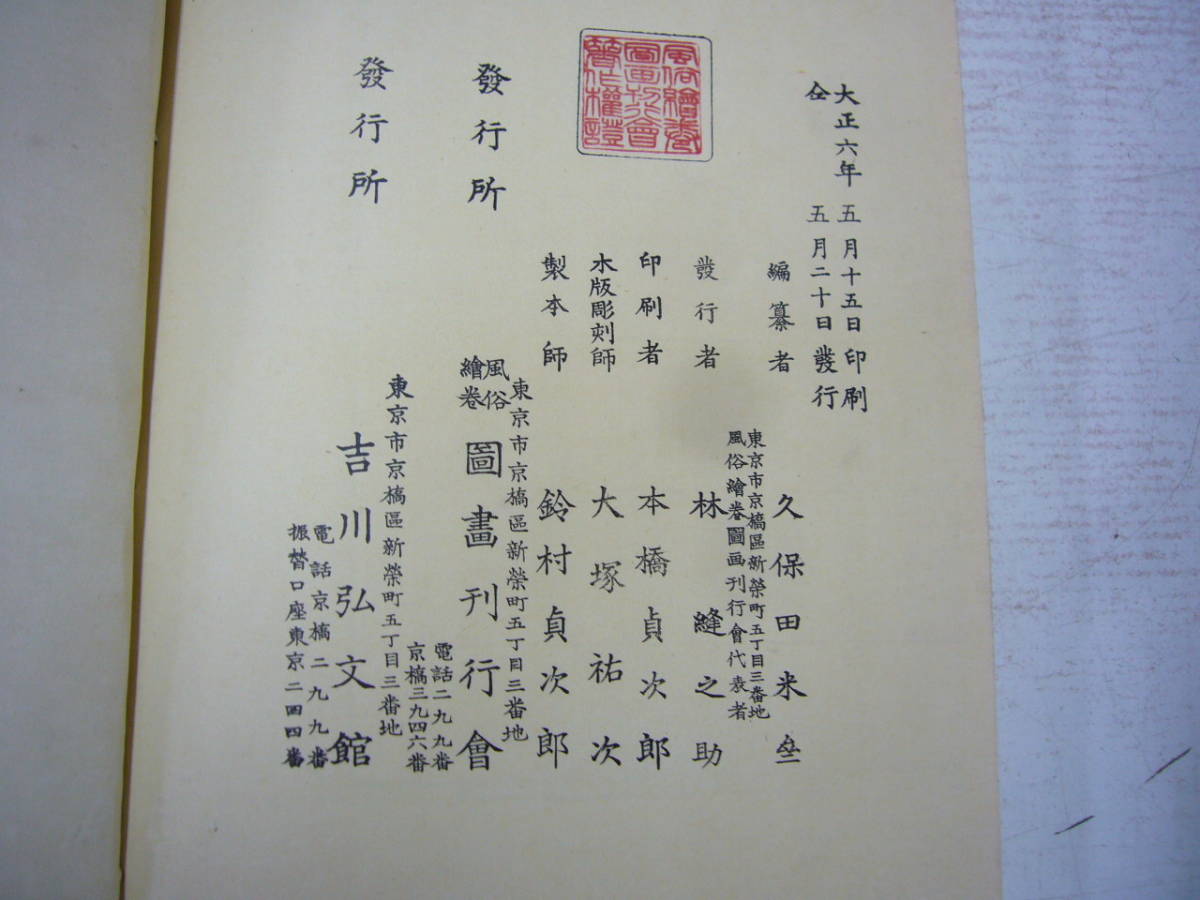 大正六年 五月十五日印刷
仝 五月二十日發行
編纂者 久保田米斎
東京市京橋區新榮町五丁目三番地
風俗繪卷圖画刊行會代表者
發行者 林縫之助
印刷者 本橋貞次郎
木版彫刻師 大塚祐次
製本師 鈴村貞次郎
東京市京橋區新榮町五丁目三番地
發行所 風俗繪卷圖畫刊行會
電話二九九番
京橋三九四六番
東京市京橋區新榮町五丁目三番地
發行所 吉川弘文館
電話京橋二九九番
振替口座東京二四四番
風俗繪卷
圖画刊行會
著作權證